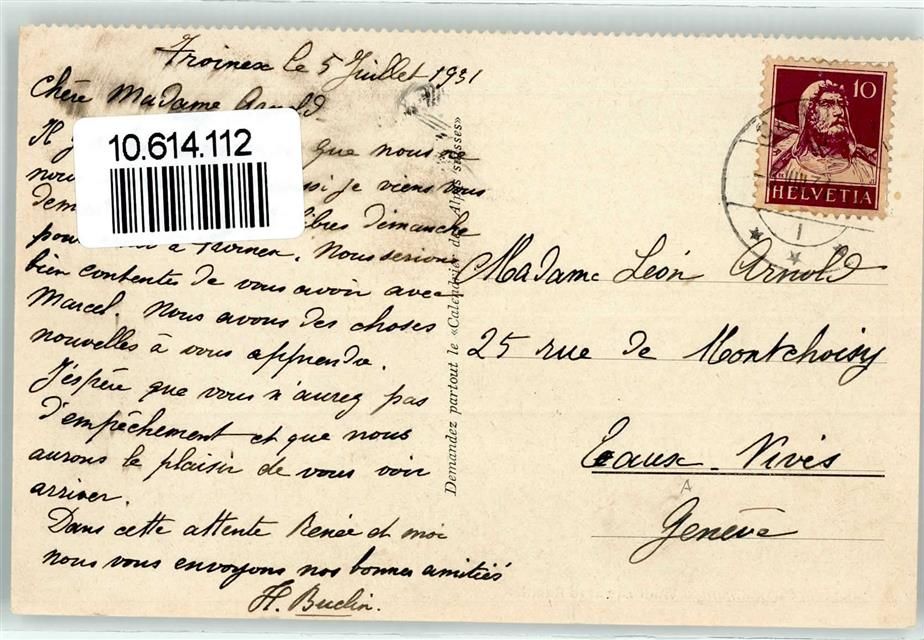 Troinex le 5 Juillet 1931
Chère Madame Arnold
Il que nous ne
je viens vous
libres dimanche
à Troinex. Nous serions
bien contentes de vous avoir avec
Marcel. Nous avons des choses
nouvelles à vous apprendre.
J'éspère que vous n'aurez pas
d'empêchement et que nous
aurons le plaisir de vous voir
arriver.
Dans cette attente Renée et moi
nous vous envoyons nos bonnes amitiés
H. Buclin.
10.614.112
Demandez partout le «Calendrier des Alpes suisses»
10
HELVETIA
Madame Léon Arnold
25 rue de Montchoisy
Eaux-Vives
Genève